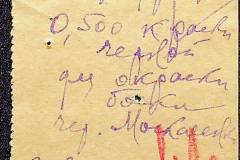 0,500 краски
черной
для окраски
бочки
чер. Москаленк